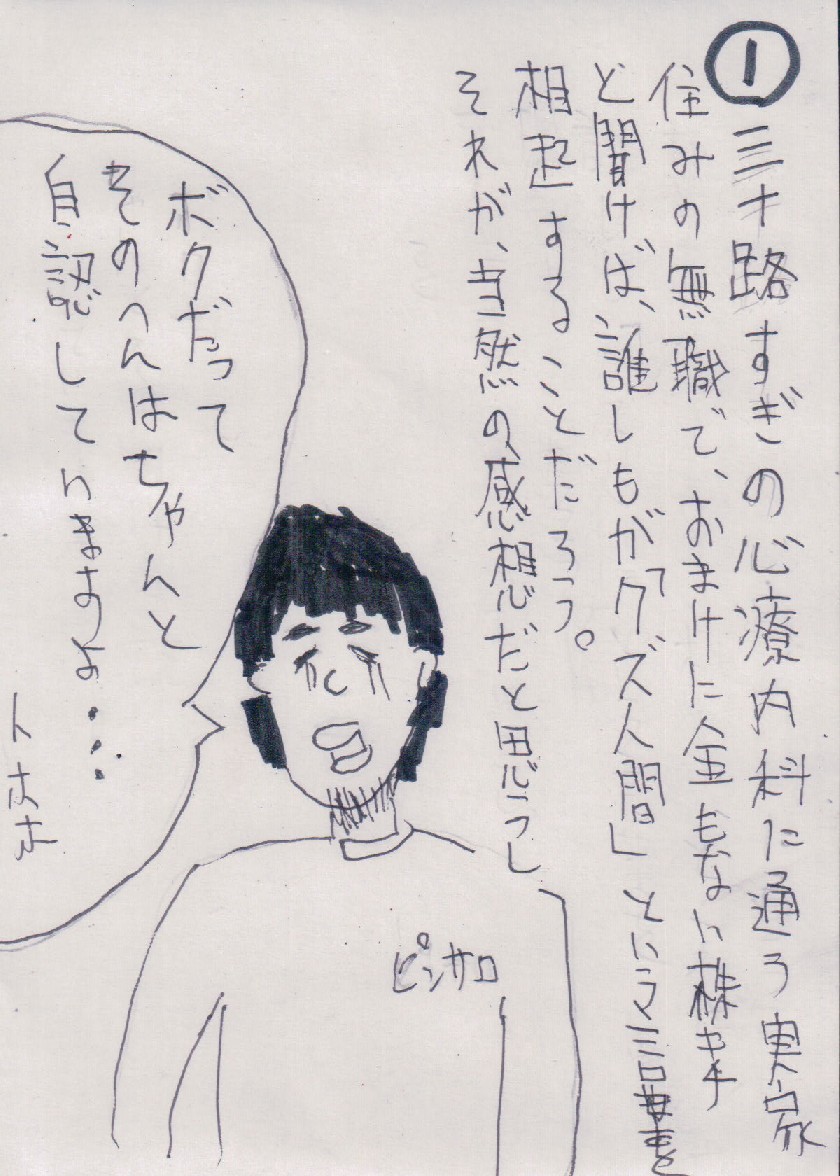 ①三十路すぎの心療内科に通う実家
住みの無職で、おまけに金もない株キチ
と聞けば、誰しもが「クズ人間」という言葉を
相起することだろう。
それが、当然の、感想だと思うし
ボクだって
そのへんはちゃんと
自認していますよ・・・
トホホ
ピンサロ